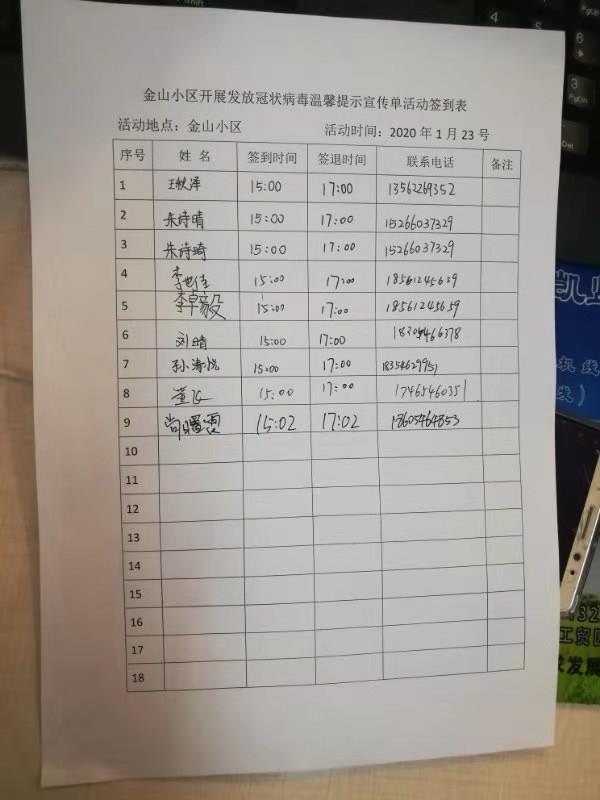 金山小区开展发放冠状病毒温馨提示宣传单活动签到表
活动地点：金山小区 活动时间：2020 年 1 月 23 号
序号 姓 名 签到时间 签退时间 联系电话 备注
1 王秋泽 15:00 17:00 13562269352
2 朱诗晴 15:00 17:00 15266037329
3 朱诗琦 15:00 17:00 15266037329
4 15:00 17:00 18561245659
5 李卓毅 15:00 17:00 18561245659
6 刘晴 15:00 17:00
7 孙清悦 15:00 17:00 18354629951
8 15:00 17:00 17465460351
9 尚曙霞 15:02 17:02 18605464853
10
11
12
13
14
15
16
17
18
凯
机 线
发）
工贸
发展